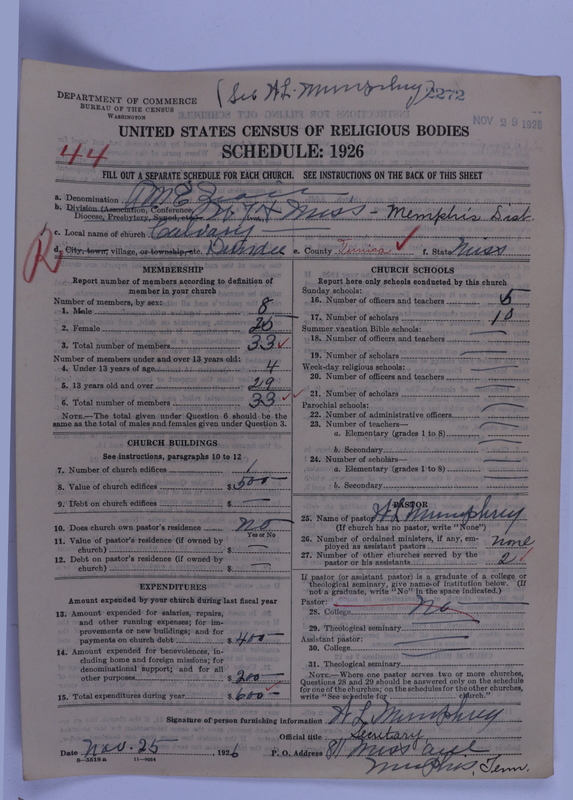 (See H.L. Mumphrey) 2272
DEPARTMENT OF COMMERCE
BUREAU OF THE CENSUS
WASHINGTON
NOV 29 1926
UNITED STATES CENSUS OF RELIGIOUS BODIES
44
SCHEDULE: 1926
FILL OUT A SEPARATE SCHEDULE FOR EACH CHURCH. SEE INSTRUCTIONS ON THE BACK OF THIS SHEET
a. Denomination A M E Zion
b. Division (Association, Conference, Diocese, Presbytery, Synod, etc. Miss - Memphis Dist.
c. Local name of church Calvary
R
d. City, town, village, or township, etc. Dundee e. County Tunica ✓ f. State Miss
MEMBERSHIP
Report number of members according to definition of member in your church
Number of members, by sex:
1. Male 8
2. Female 25
3. Total number of members 33 ✓
Number of members under and over 13 years old:
4. Under 13 years of age 4
5. 13 years old and over 29
6. Total number of members 33 ✓
NOTE.—The total given under Question 6 should be the same as the total of males and females given under Question 3.
CHURCH BUILDINGS
See instructions, paragraphs 10 to 12
7. Number of church edifices 1
8. Value of church edifices $ 500
9. Debt on church edifices $ —
10. Does church own pastor's residence no
Yes or No
11. Value of pastor's residence (if owned by church) $ —
12. Debt on pastor's residence (if owned by church) $ —
EXPENDITURES
Amount expended by your church during last fiscal year
13. Amount expended for salaries, repairs, and other running expenses; for improvements or new buildings; and for payments on church debt $ 400
14. Amount expended for benevolences, including home and foreign missions; for denominational support; and for all other purposes $ 200
15. Total expenditures during year $ 600 ✓
CHURCH SCHOOLS
Report here only schools conducted by this church
Sunday schools:
16. Number of officers and teachers 5
17. Number of scholars 10
Summer vacation Bible schools:
18. Number of officers and teachers —
19. Number of scholars —
Week-day religious schools:
20. Number of officers and teachers —
21. Number of scholars —
Parochial schools:
22. Number of administrative officers —
23. Number of teachers—
a. Elementary (grades 1 to 8) —
b. Secondary —
24. Number of scholars—
a. Elementary (grades 1 to 8) —
b. Secondary —
PASTOR
25. Name of pastor H L Mumphrey
(If church has no pastor, write "None")
26. Number of ordained ministers, if any, employed as assistant pastors none
27. Number of other churches served by the pastor or his assistants 2
If pastor (or assistant pastor) is a graduate of a college or theological seminary, give name of institution below. (If not a graduate, write "No" in the space indicated.)
Pastor:
28. College No
29. Theological seminary
Assistant pastor:
30. College —
31. Theological seminary
NOTE.—Where one pastor serves two or more churches, Questions 28 and 29 should be answered only on the schedule for one of the churches; on the schedules for the other churches, write "See schedule for church."
Signature of person furnishing information H L Mumphrey
Official title Secretary
Date Nov. 25, 1926 P. O. Address 811 Miss ave
8—5518 a 11—9054 Memphis, Tenn.